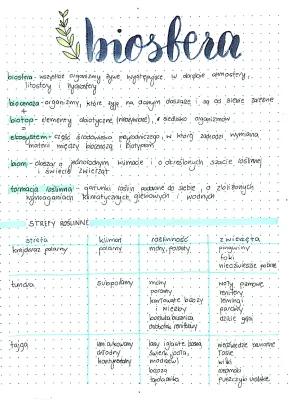 biosfera
biosfera - wszystkie organizmy żywe, występujące w obrębie atmosfery,
litosfery i hydrosfery
biocenoza - organizmy, które żyją na danym obszarze i są od siebie zależne
+
biotop - elementy abiotyczne (nieożywione), siedlisko organizmów
=
ekosystem - część środowiska przyrodniczego, w którą zachodzi wymiana
materii między biocenozą i biotopem
biom - obszar o jednorodnym klimacie i o określonych szacie roślinnej
i świecie zwierząt
formacja roślinna - gatunki roślin podobne do siebie, o zbliżonych
wymaganiach klimatycznych, glebowych i wodnych
STREFY ROŚLINNE
strefa klimat roślinność zwierzęta
krajobraz polarny polarny mchy, porosty pingwiny
foki
niedźwiedzie polarne
tundra subpolarny mchy woły piżmowe
porosty renifery
karłowate brzozy lemingi
i wierzby pardwy
borówka bagienna dzikie gęsi
chrobotek reniferowy
tajga umiarkowany lasy iglaste: sosna, niedźwiedzie brunatne
chłodny świerk, jodła, łosie
kontynentalny modrzew wilki
brzoza rosomaki